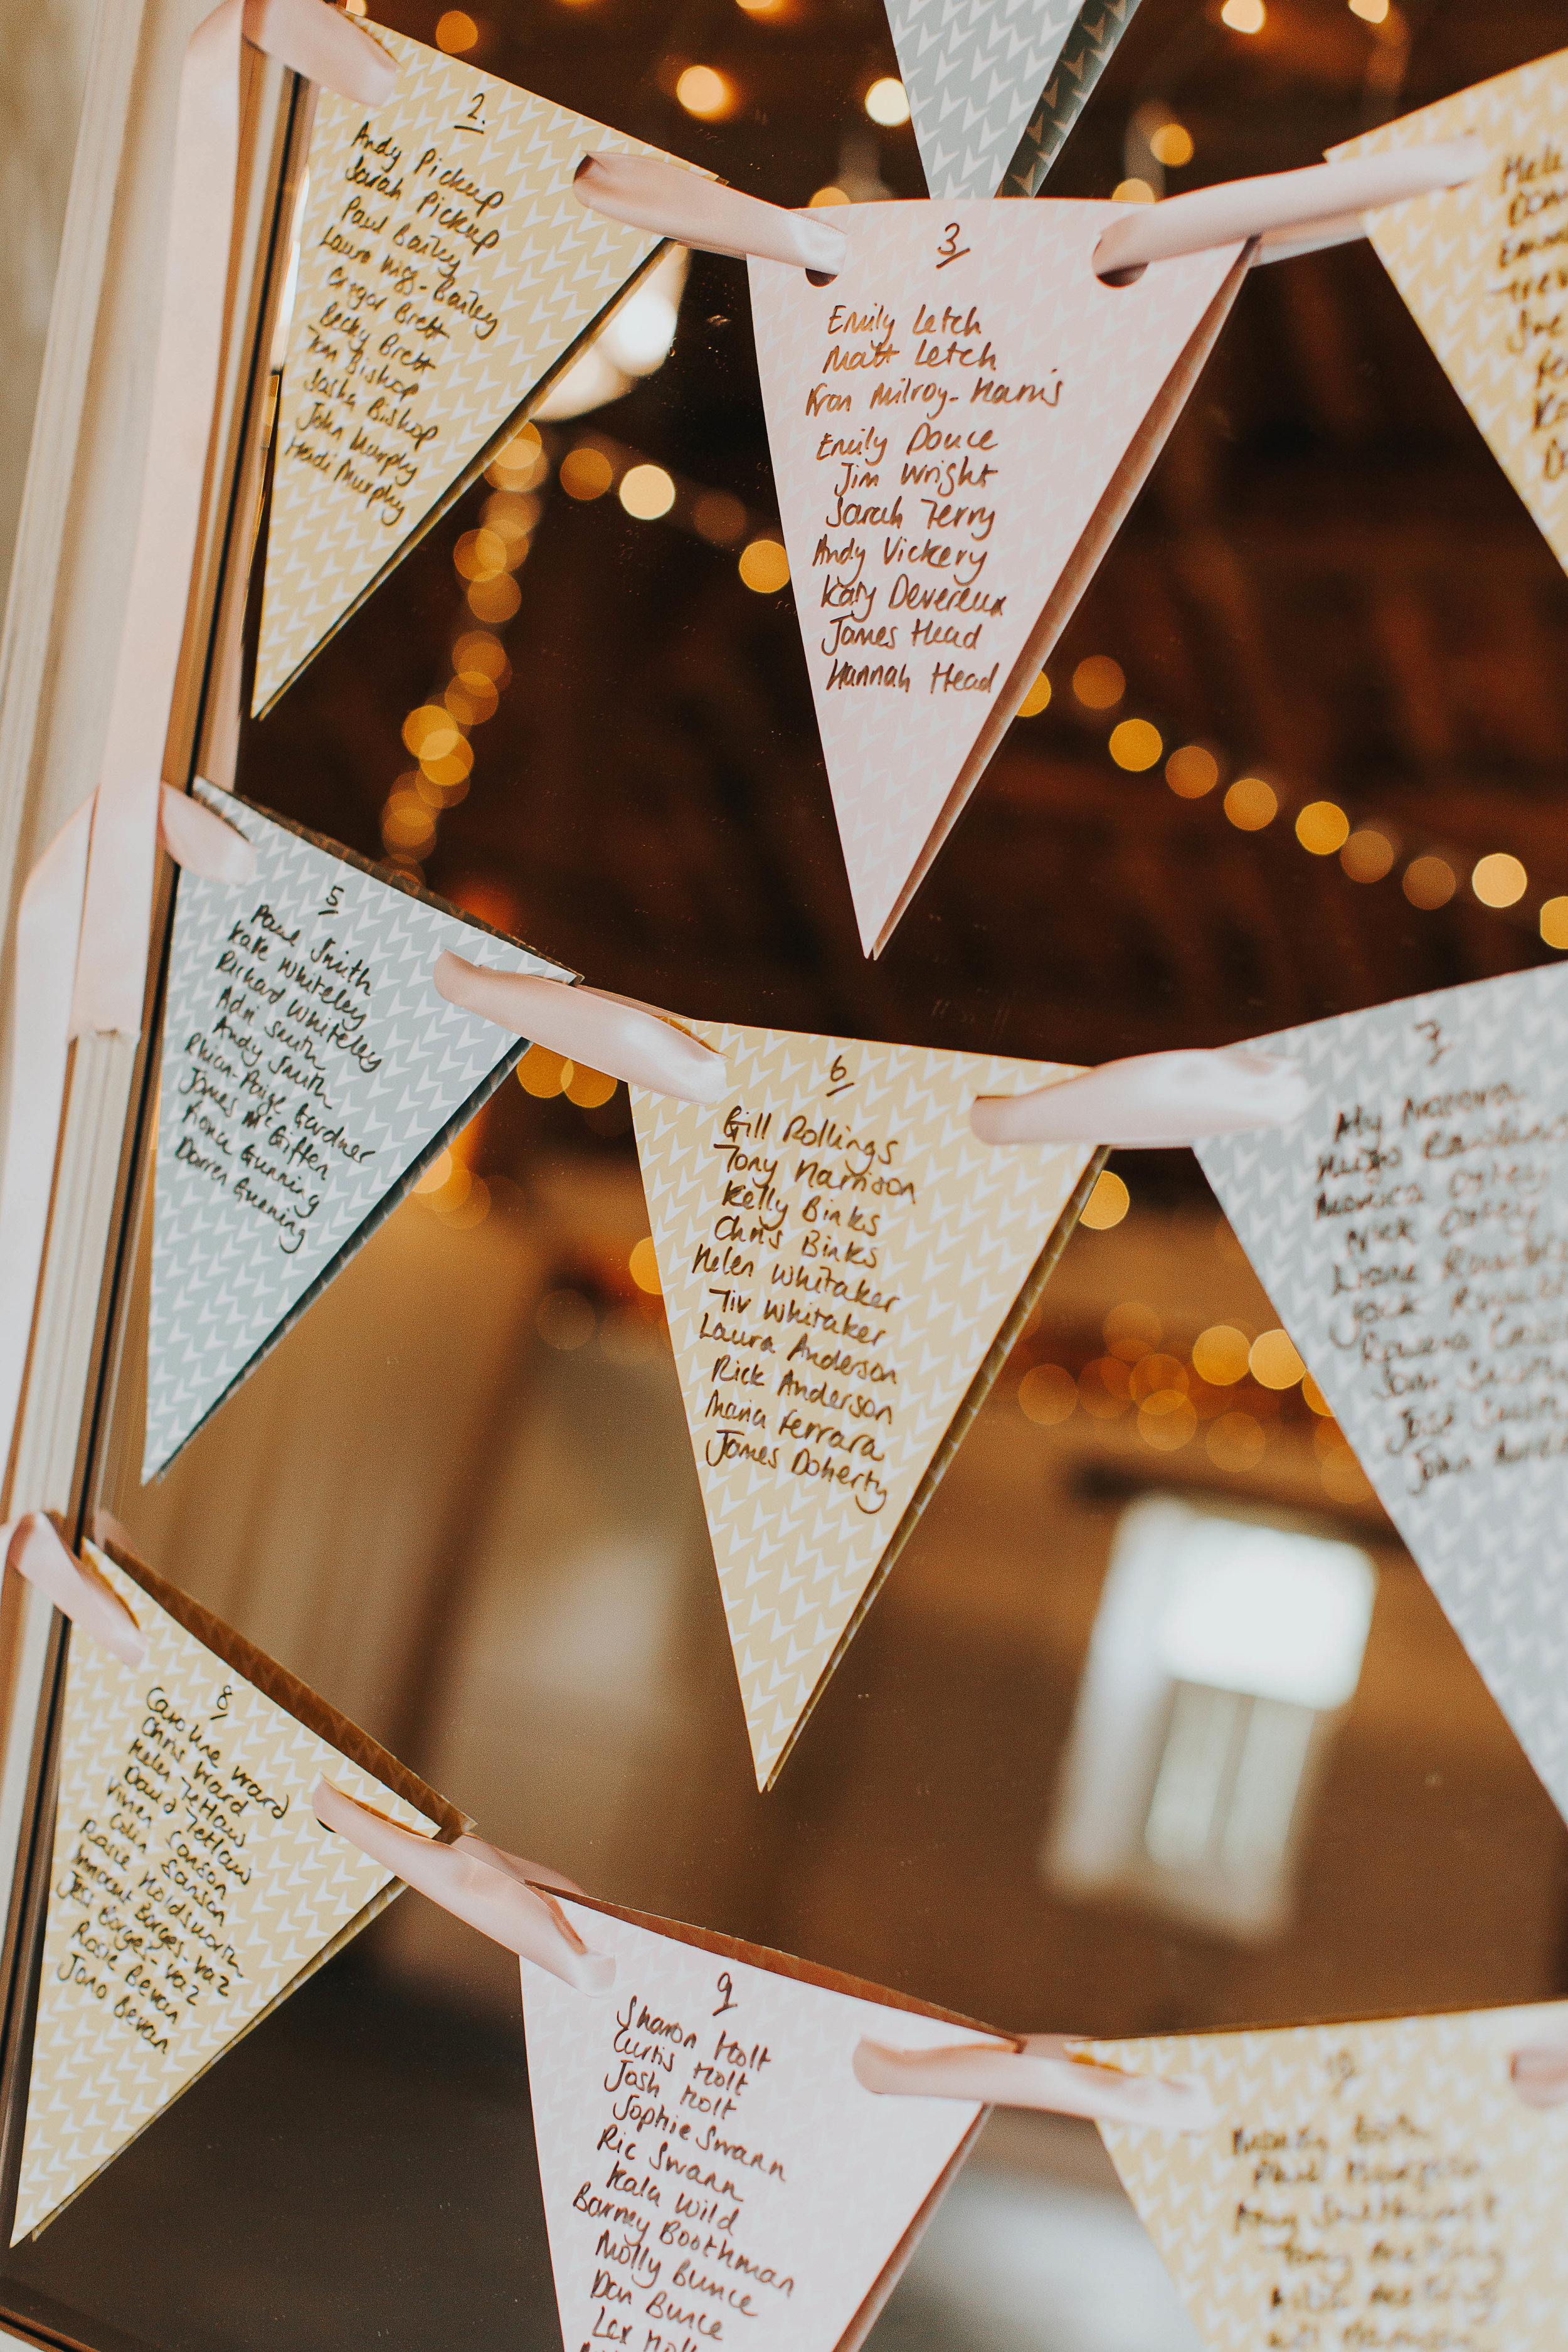 2.
Andy Pickup
Sarah Pickup
Paul Bailey
Laura Wigg-Bailey
Gregor Brett
Becky Brett
Tom Bishop
Sasha Bishop
John Murphy
Heidi Murphy
3
Emily Letch
Matt Letch
Fran Milroy-Harris
Emily Douce
Jim Wright
Sarah Terry
Andy Vickery
Katy Devereux
James Head
Hannah Head
5
Paul Smith
Kate Whiteley
Richard Whiteley
Adri Smith
Andy Smith
Rhian-Paige Gardner
James McGiffen
Fiona Gunning
Darren Gunning
6
Gill Rollings
Tony Harrison
Kelly Binks
Chris Binks
Helen Whitaker
Tiv Whitaker
Laura Anderson
Rick Anderson
Maria Ferrara
James Doherty
7
Aly
Hugo
Monica Oxley
Nick Oxley
Jack
John
John
8
Caroline Ward
Chris Ward
Helen Tetlaw
David Tetlaw
Vivien Sanson
Colin Sanson
Rosie Holdsworth
Innocent Borges-Vaz
Jess Borges-Vaz
Rosie Bevan
Jono Bevan
9
Sharon Holt
Curtis Holt
Josh Holt
Sophie Swann
Ric Swann
Kala Wild
Barney Boothman
Molly Bunce
Dan Bunce
Lex
10
Phil
Tony